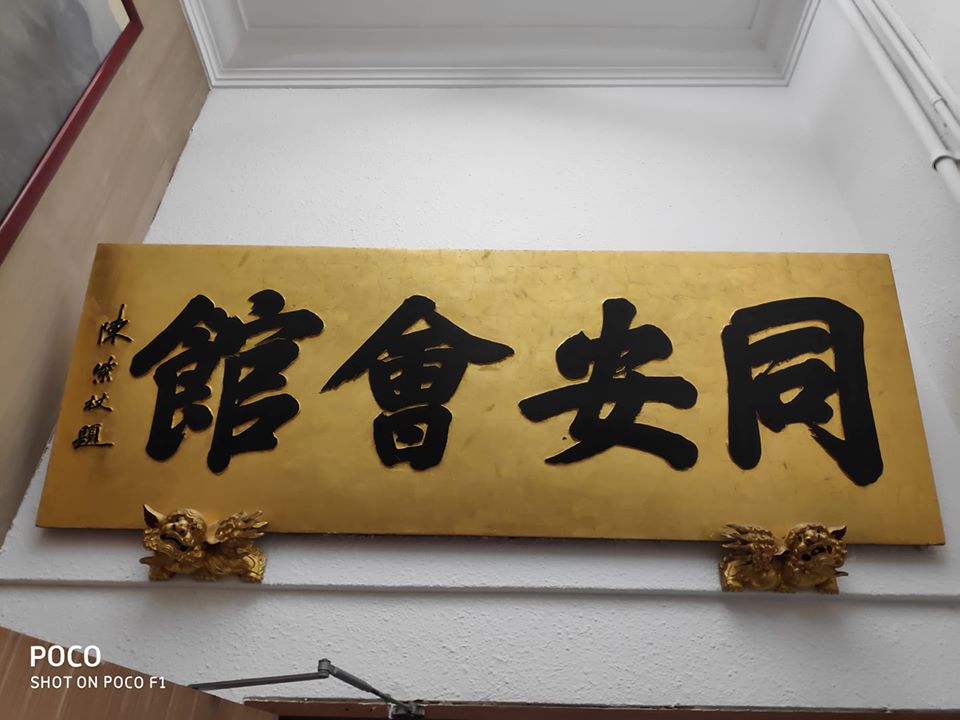 同安會館
陳 題
POCO
SHOT ON POCO F1